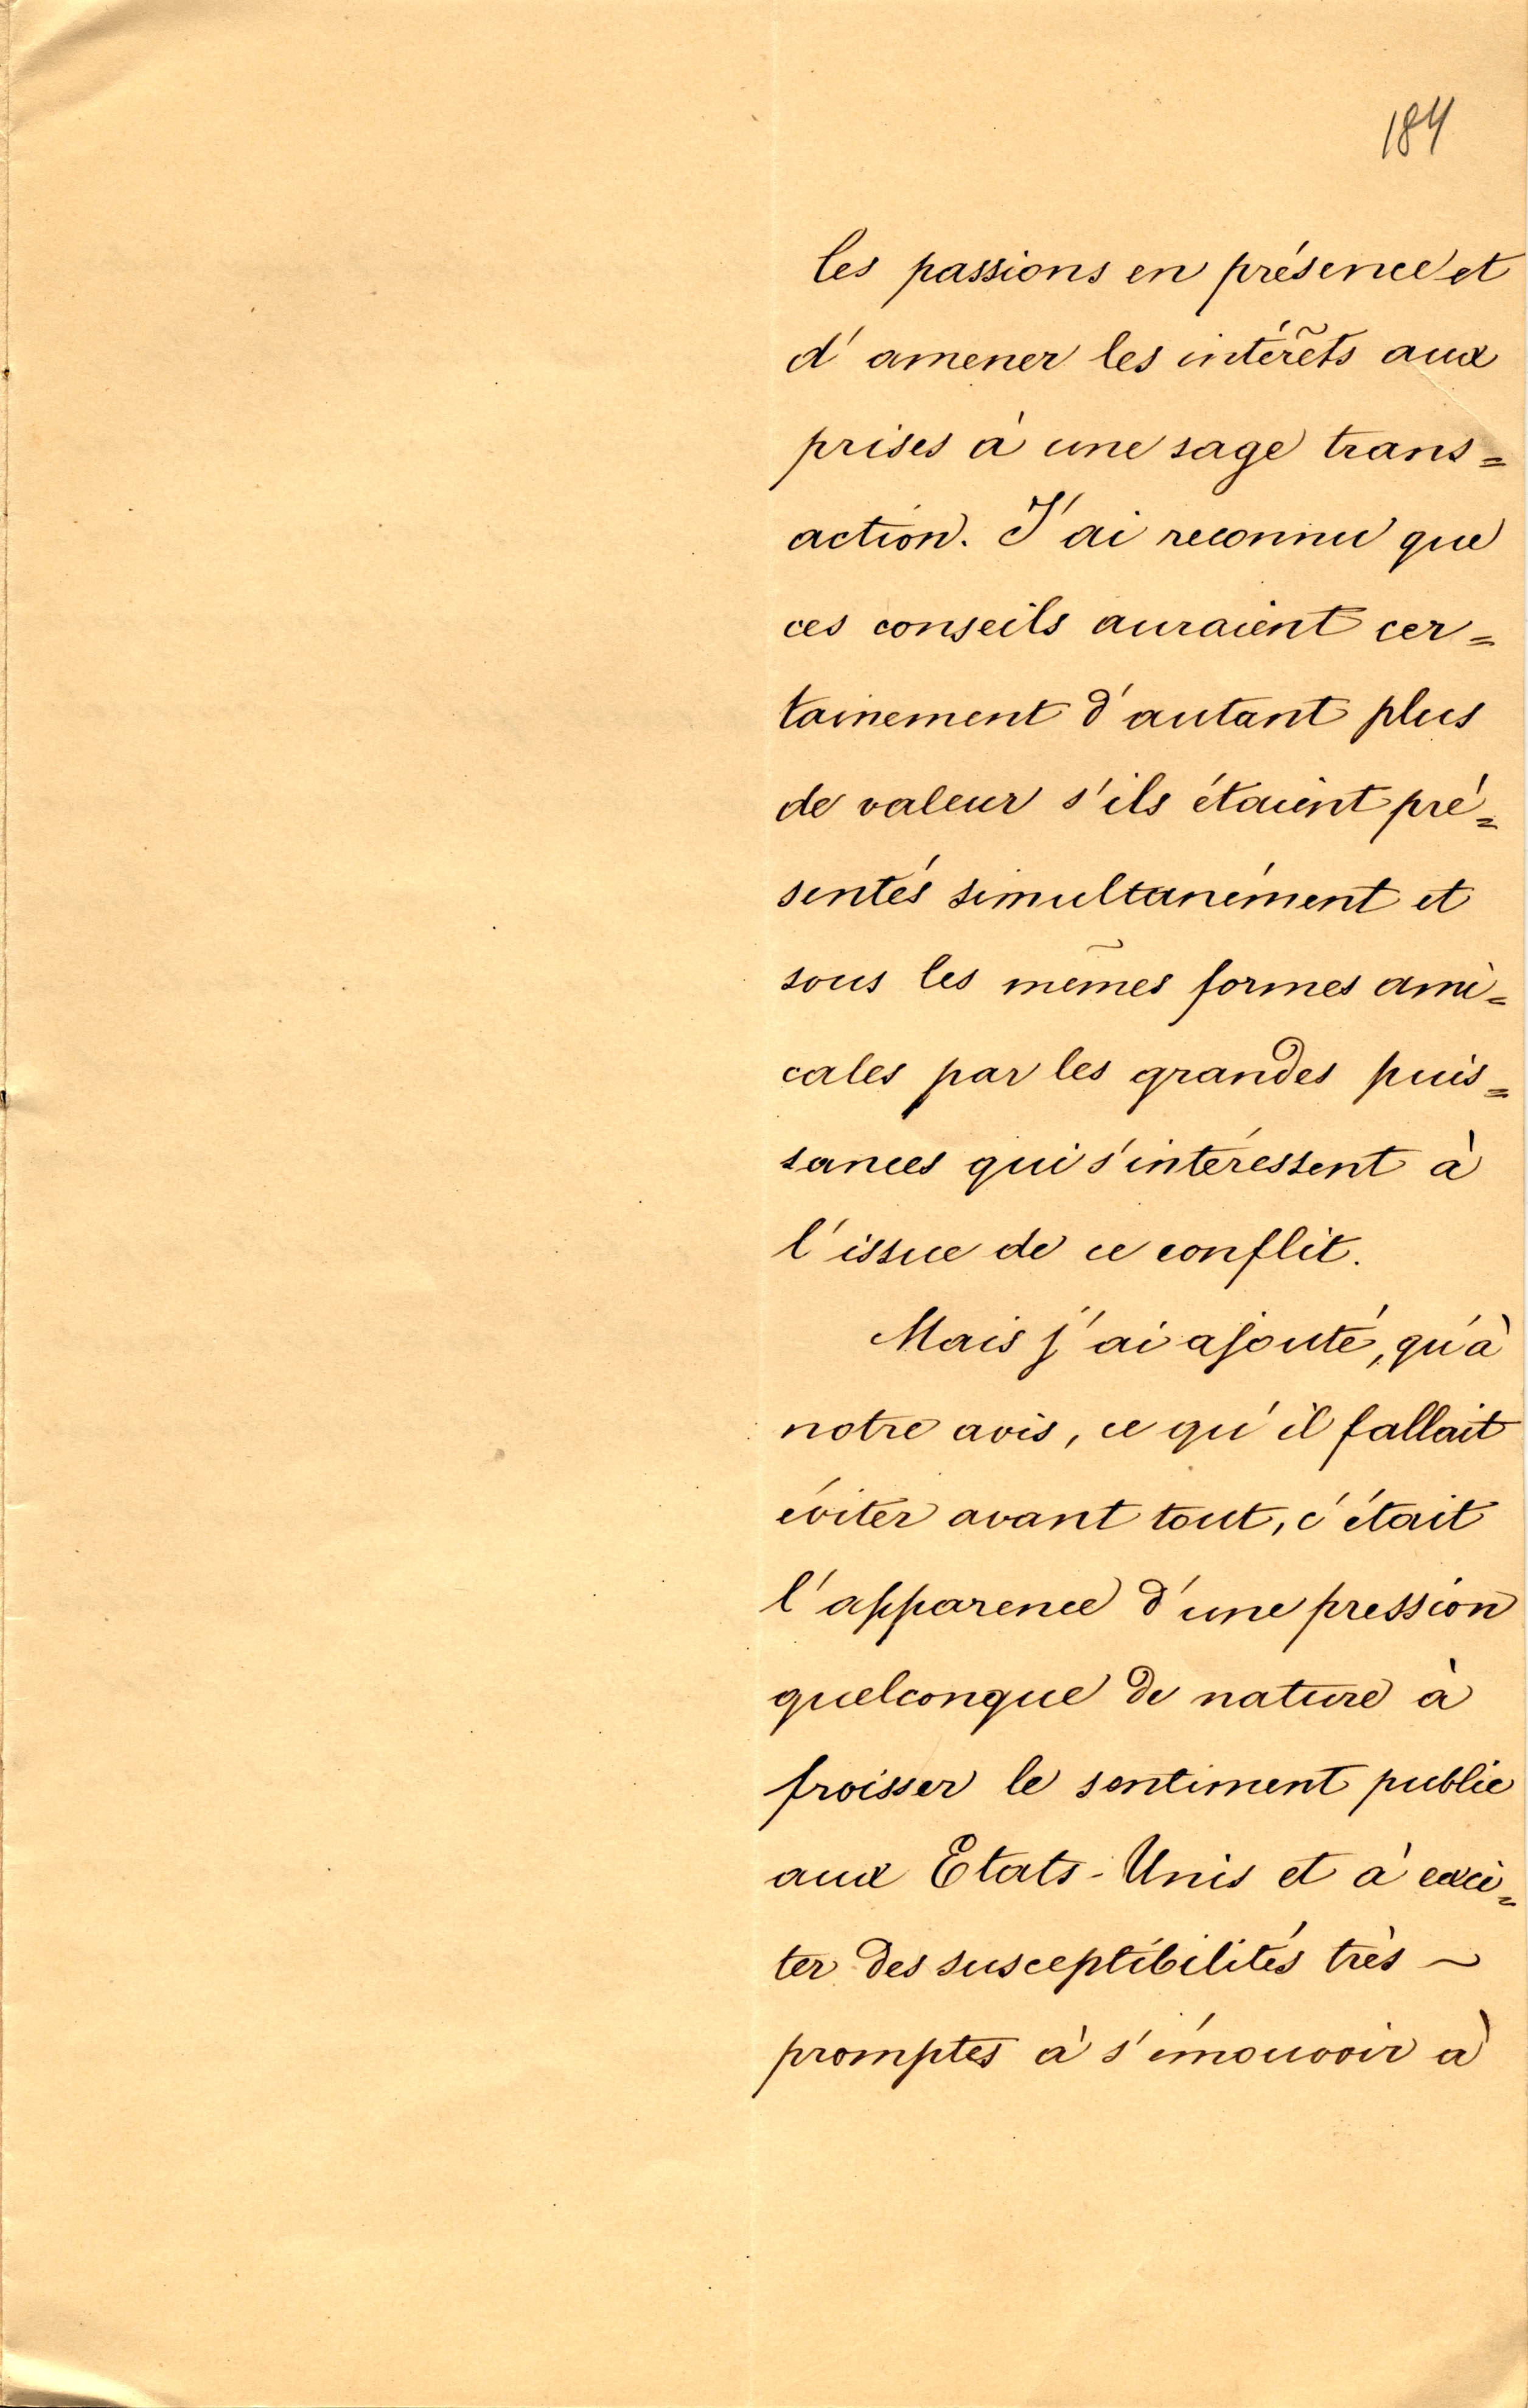 184
les passions en présence et
d'amener les intérêts aux
prises à une sage trans=
action. J'ai reconnu que
ces conseils auraient cer=
tainement d'autant plus
de valeur s'ils étaient pré=
sentés simultanément et
sous les mêmes formes ami=
cales par les grandes puis=
sances qui s'intéressent à
l'issue de ce conflit.
Mais j'ai ajouté, qu'à
notre avis, ce qu'il fallait
éviter avant tout, c'était
l'apparence d'une pression
quelconque de nature à
froisser le sentiment public
aux Etats-Unis et à exci=
ter des susceptibilités très ~
promptes à s'émouvoir à